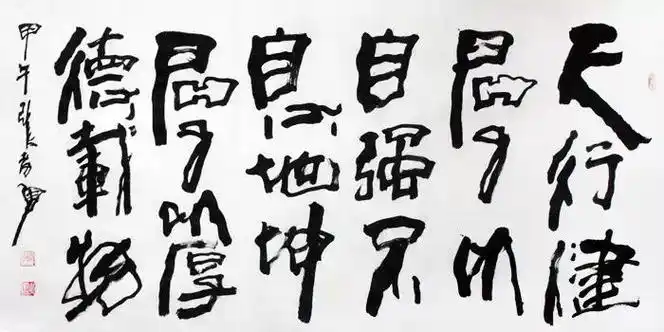 天行健
君子以
自强不
息地坤
君子以厚
德載物
甲午